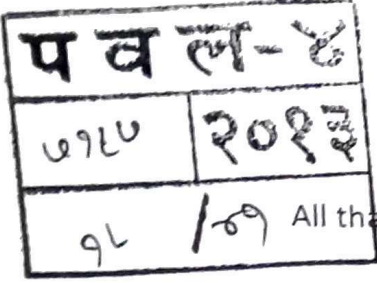 प व ल-४
७१८७ २०१३
१८ / All tha